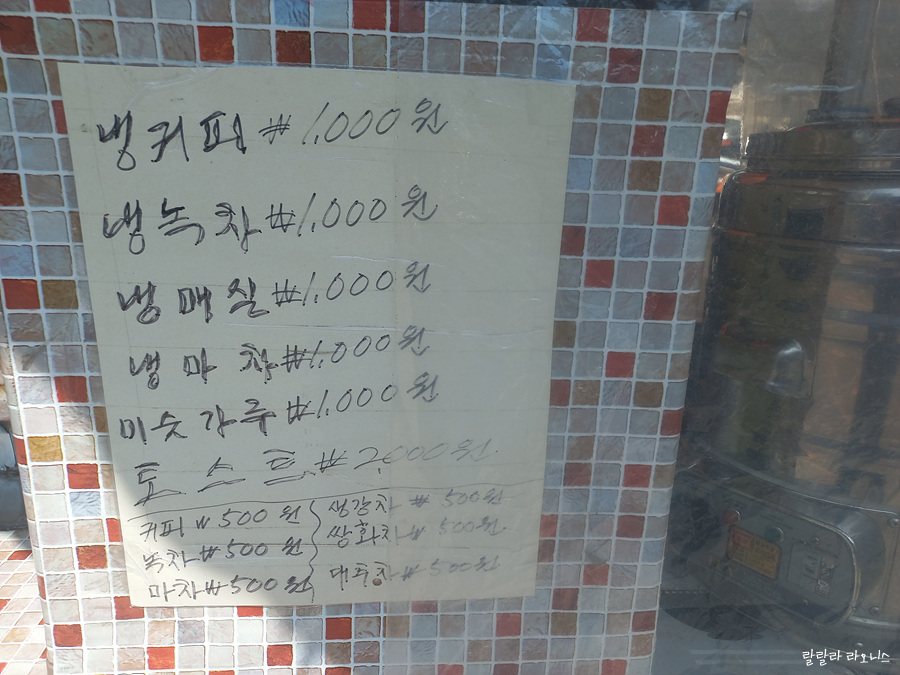 냉커피 ₩1,000원
냉녹차 ₩1,000원
냉매실 ₩1,000원
냉마차 ₩1,000원
미숫가루 ₩1,000원
토스트 ₩2,000원
커피 ₩500원
녹차 ₩500원
마차 ₩500원
생강차 ₩500원
쌍화차 ₩500원
대추차 ₩500원
랄랄라 라오니스